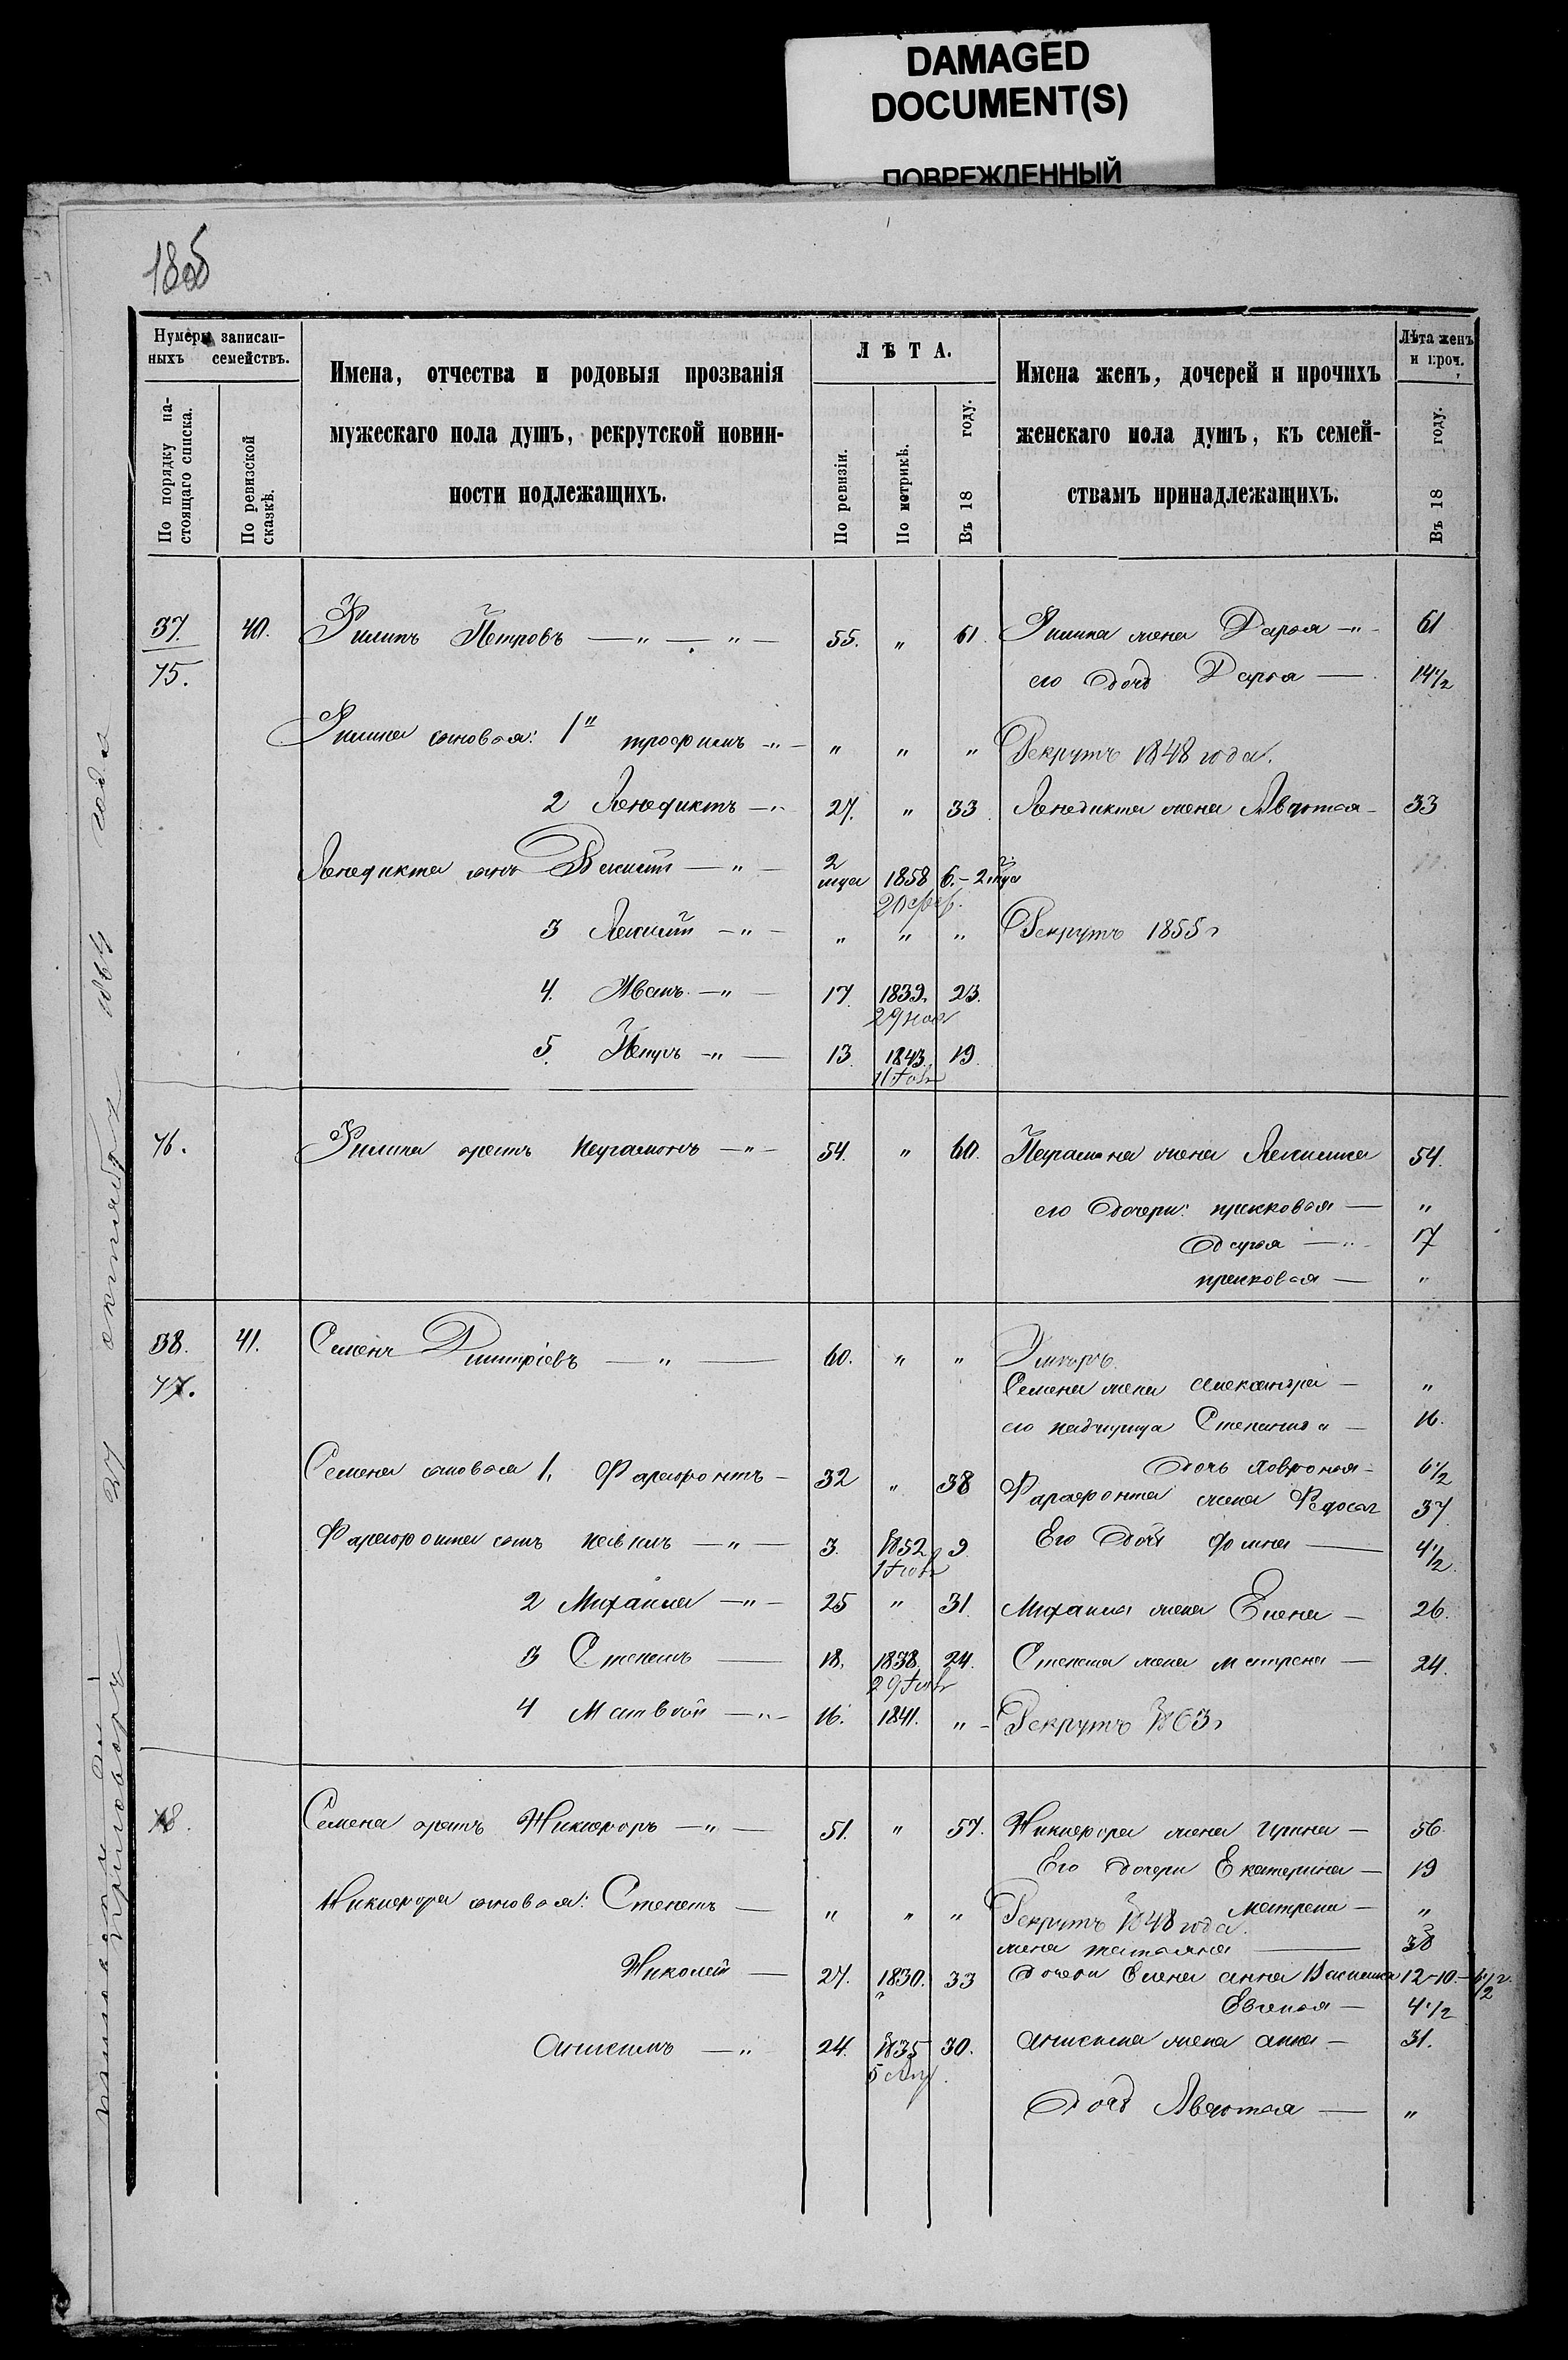 DAMAGED
DOCUMENT(S)
ПОВРЕЖДЕННЫЙ
Нумера записан-
ныхъ семействъ.
По порядку на-
стоящаго списка.
По ревизской
сказкѣ.
Имена, отчества и родовыя прозванія
мужескаго пола душъ, рекрутской повин-
ности подлежащихъ.
ЛѢТА.
По ревизіи.
По метрикѣ.
Въ 18 году.
Имена женъ, дочерей и прочихъ
женскаго пола душъ, къ семей-
ствамъ принадлежащихъ.
Лѣта женъ
и проч.
Въ 18 году.
37. 40. Филипъ Петровъ — „ — „ — 55. „ 61. Филипа жена Дарья — „ — 61
75. его дочь Дарья — 14 1/2
Филипа сыновья: 1й трофимъ — „ — „ „ „ Рекрутъ 1848 года.
2 Венедиктъ — „ 27. „ 33. Венедикта жена Авдотья — 33
Венедикта сынъ — „ — 2 мца 1858 6. – 2 мца
20 фев.
3 Алексѣй — „ — „ „ „ Рекрутъ 1855 г
4. Иванъ — „ — 17. 1839. 23.
29 ноя
5. Петръ — „ — 13. 1843. 19.
76. Филипа братъ — „ — 54. „ 60. жена 54.
его дочери: прасковья — „
дарья — „ — 17
прасковья — „
38. 41. Семенъ Дмитріевъ — „ — 60. „ „ Умеръ.
77. Семена жена александра — „
его падчерица Степанида — 16.
дочь 6 1/2
Семена сыновья 1. Фарафонтъ — 32 „ 38 Фарафонта жена Федосья 37
Фарафонта сынъ — „ — 3. 1852 9. Его дочь — 4 1/2
2 Михаила — „ — 25 „ 31. Михаила жена Елена — 26.
3 Степанъ — 18. 1838. 24. Степана жена матрена — 24.
4 Матвѣй — „ — 16. 1841. „ — Рекрутъ 1863 г
78. Семена братъ Никифоръ — „ — 51. „ 57. Никифора жена Ирина — 56.
Его дочери Екатерина — 19
матрена — „
Никифора сыновья: Степанъ — „ „ „ Рекрутъ 1848 года.
жена татьяна — 38
Николай — 27. 1830. 33 дочери Елена анна Василиса 12–10.–6 1/2 г.
4 1/2
анисимъ — „ 24. 1835 30. анисима жена анна — 31.
дочь Авдотья — „
27 октября 1864 года